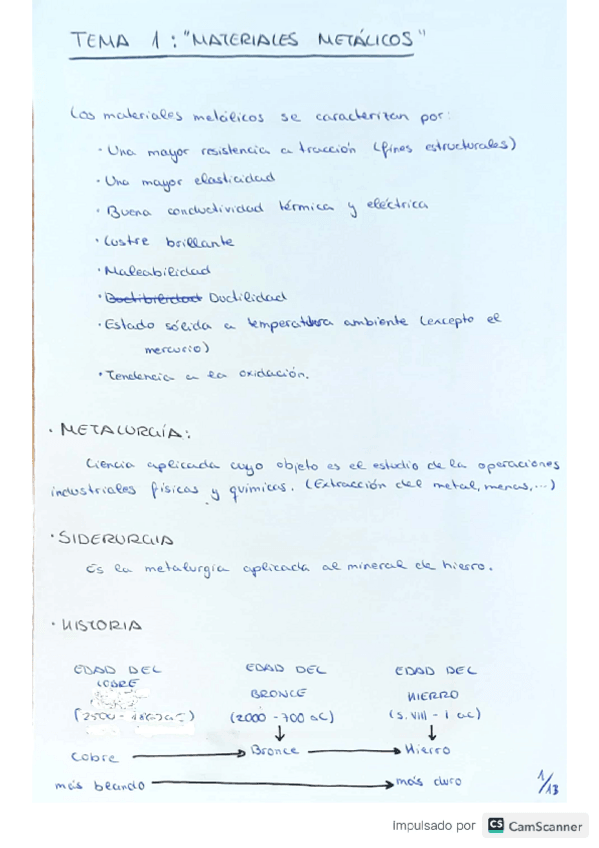 TEMA 1: "MATERIALES METÁLICOS"
Los materiales metálicos se caracterizan por:
· Una mayor resistencia a tracción (fines estructurales)
· Una mayor elasticidad
· Buena conductividad térmica y eléctrica
· Lustre brillante
· Maleabilidad
· Ductilidad
· Estado sólido a temperatura ambiente (excepto el
mercurio)
· Tendencia a la oxidación.
· METALURGÍA:
Ciencia aplicada cuyo objeto es el estudio de la operaciones
industriales físicas y químicas. (Extracción del metal, menas,...)
· SIDERURGIA
Es la metalurgia aplicada al mineral de hierro.
· HISTORIA
EDAD DEL EDAD DEL EDAD DEL
COBRE BRONCE HIERRO
(2000 - 700 aC) (s. VIII - I aC)
Cobre Bronce Hierro
más blando más duro
1/13
Impulsado por CS CamScanner